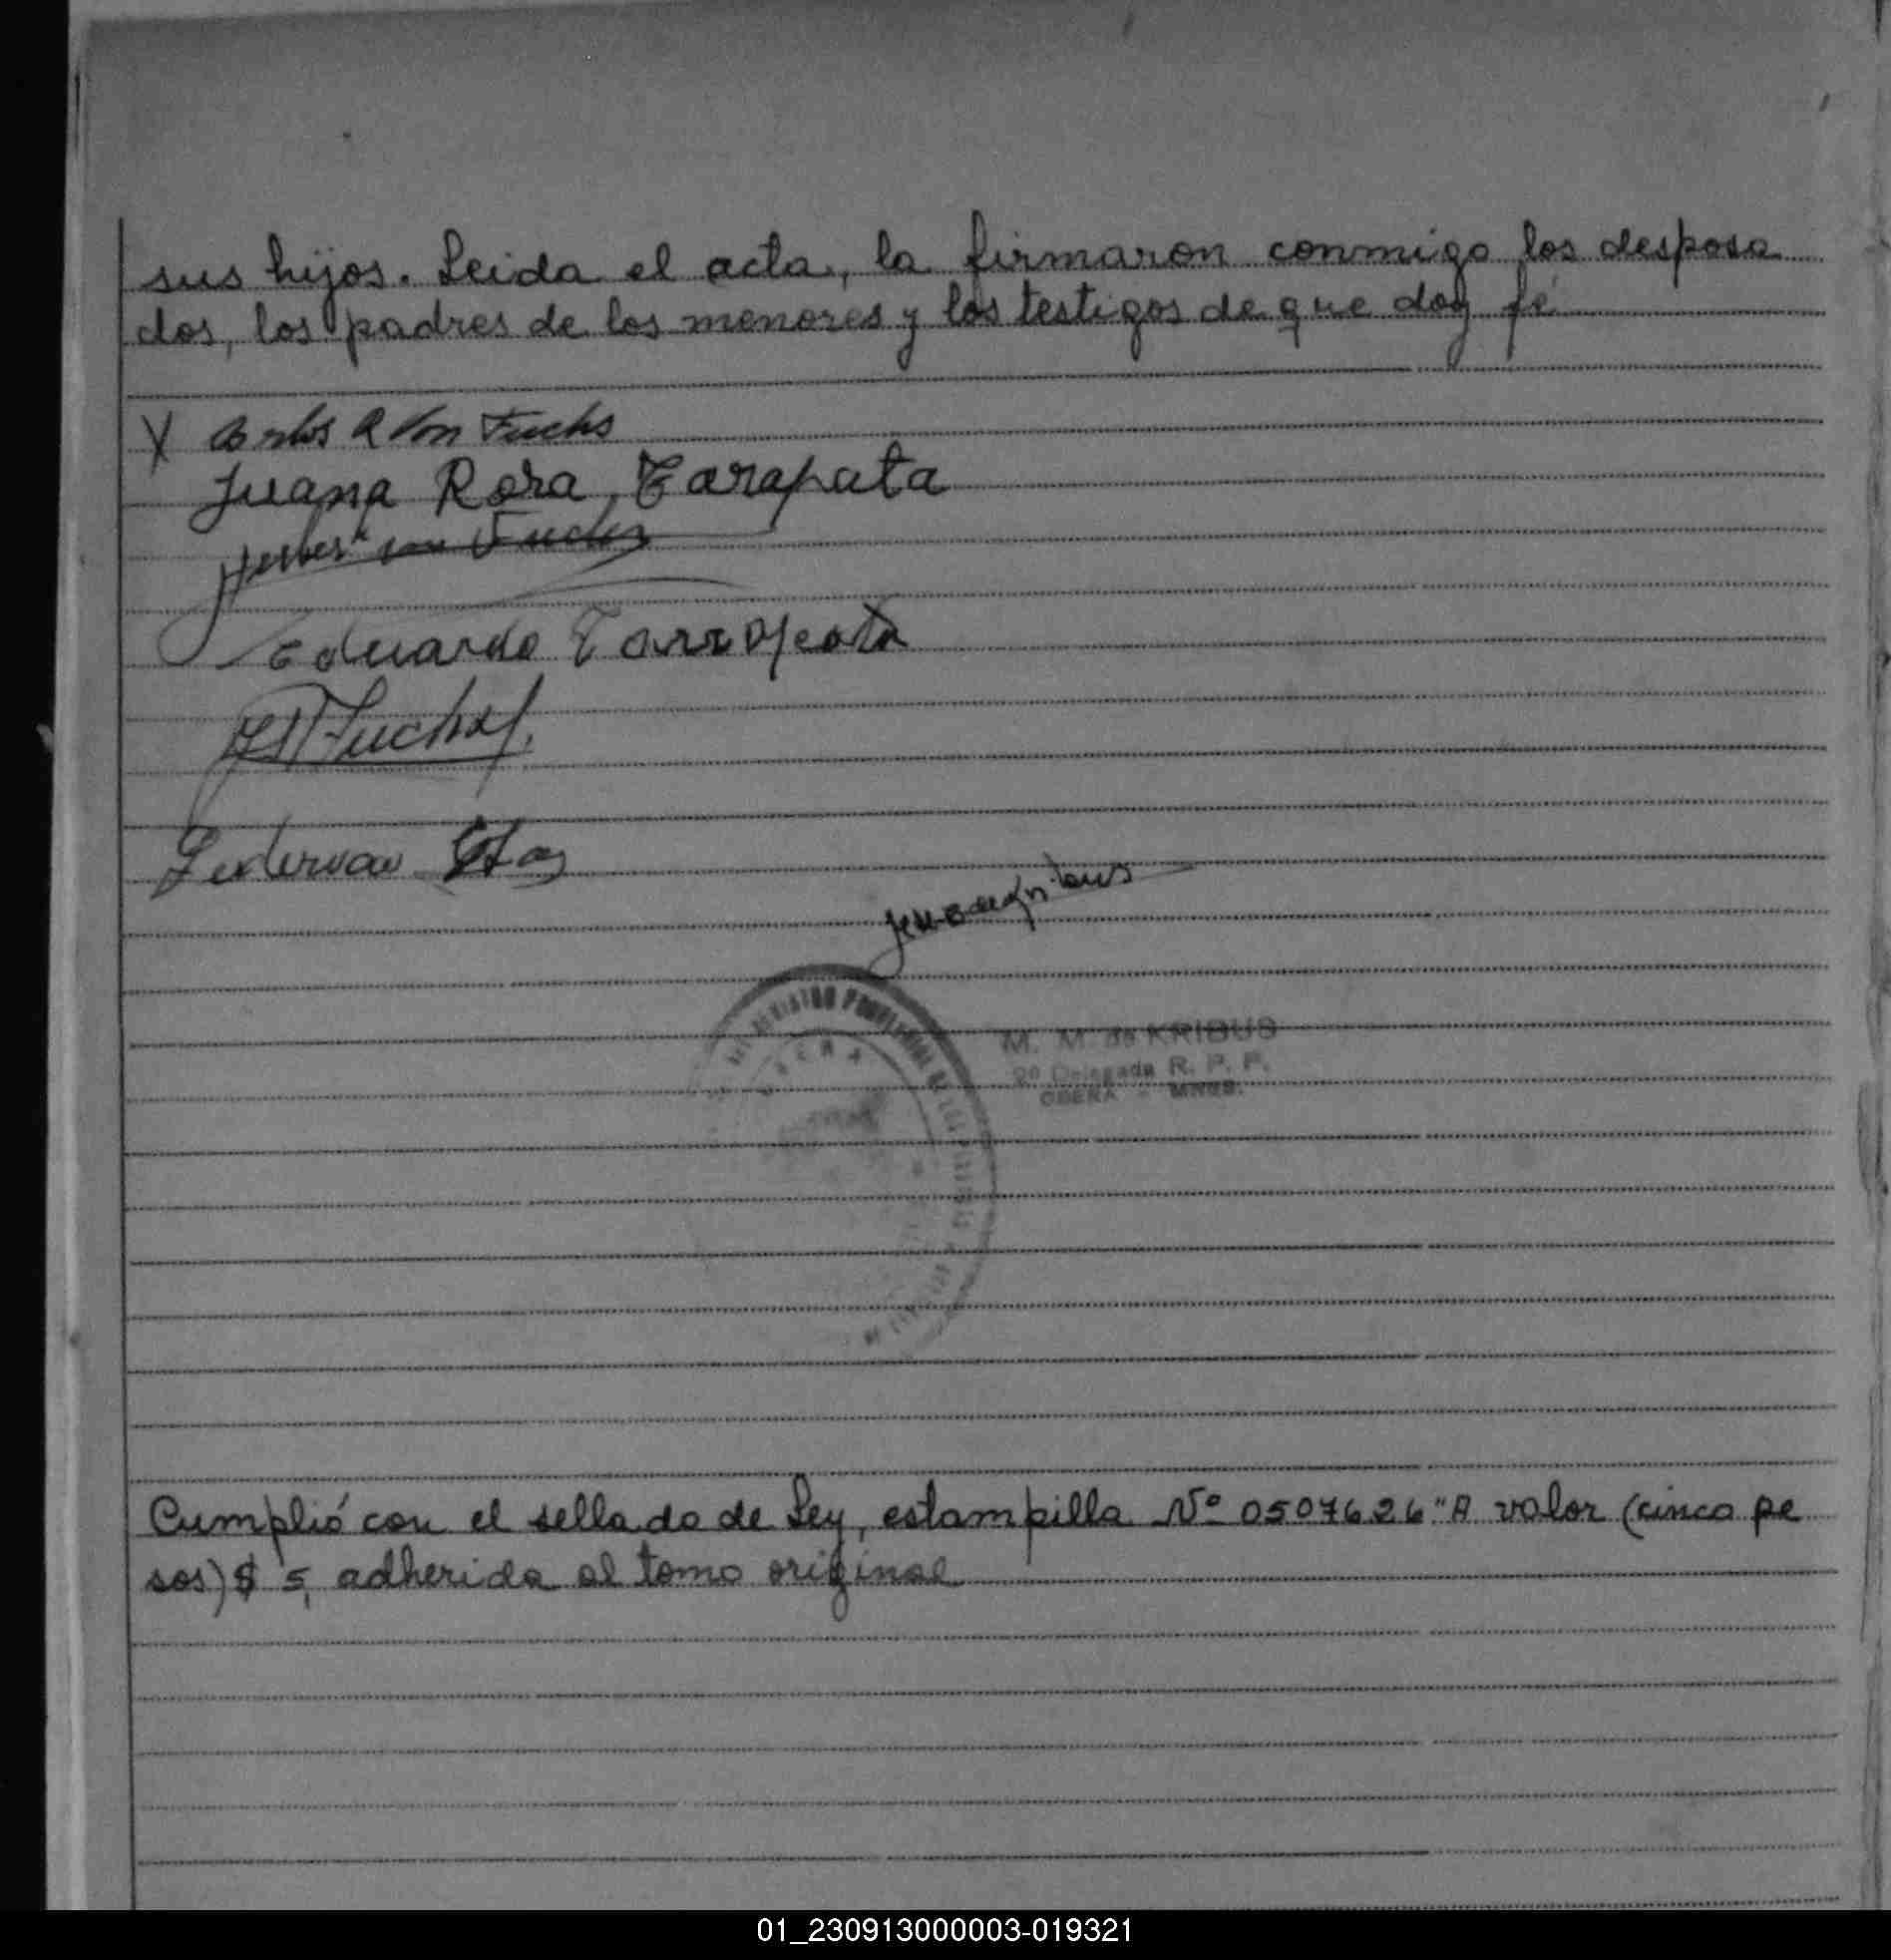 sus hijos. Leida el acta, la firmaron conmigo los desposa
dos, los padres de los menores y los testigos de que doy fé
X Carlos R Von Fuchs
Juana Rosa Tarapata
von Fuchs
Eduardo Tarrapata
Fuchs
M. M. de KRIBUS
2º Delegada R. P. P.
OBERA - MNES.
Cumplió con el sellado de Ley, estampilla Nº 0507626 "A valor (cinco pe
sos) $ 5, adherida al tomo original
01_230913000003-019321